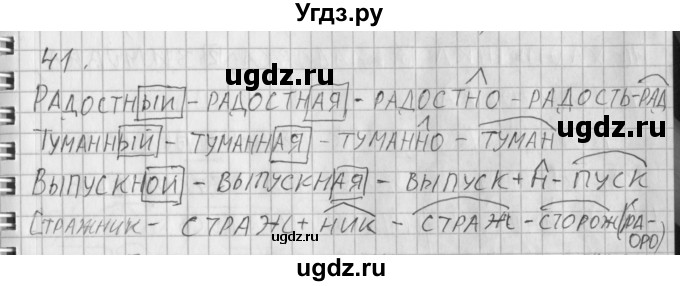 Угдз.ру
41.
РАДОСТНЫЙ - РАДОСТНАЯ - РАДОСТНО - РАДОСТЬ-РАД
ugdz.ru
ТУМАННЫЙ - ТУМАННАЯ - ТУМАННО - ТУМАН
ВЫПУСКНОЙ - ВЫПУСКНАЯ - ВЫПУСК + Н - ПУСК
СТРАЖНИК - СТРАЖ + НИК - СТРАЖ - СТОРОЖ (РА-
ОРО)
ugdz.ru ugdz.ru